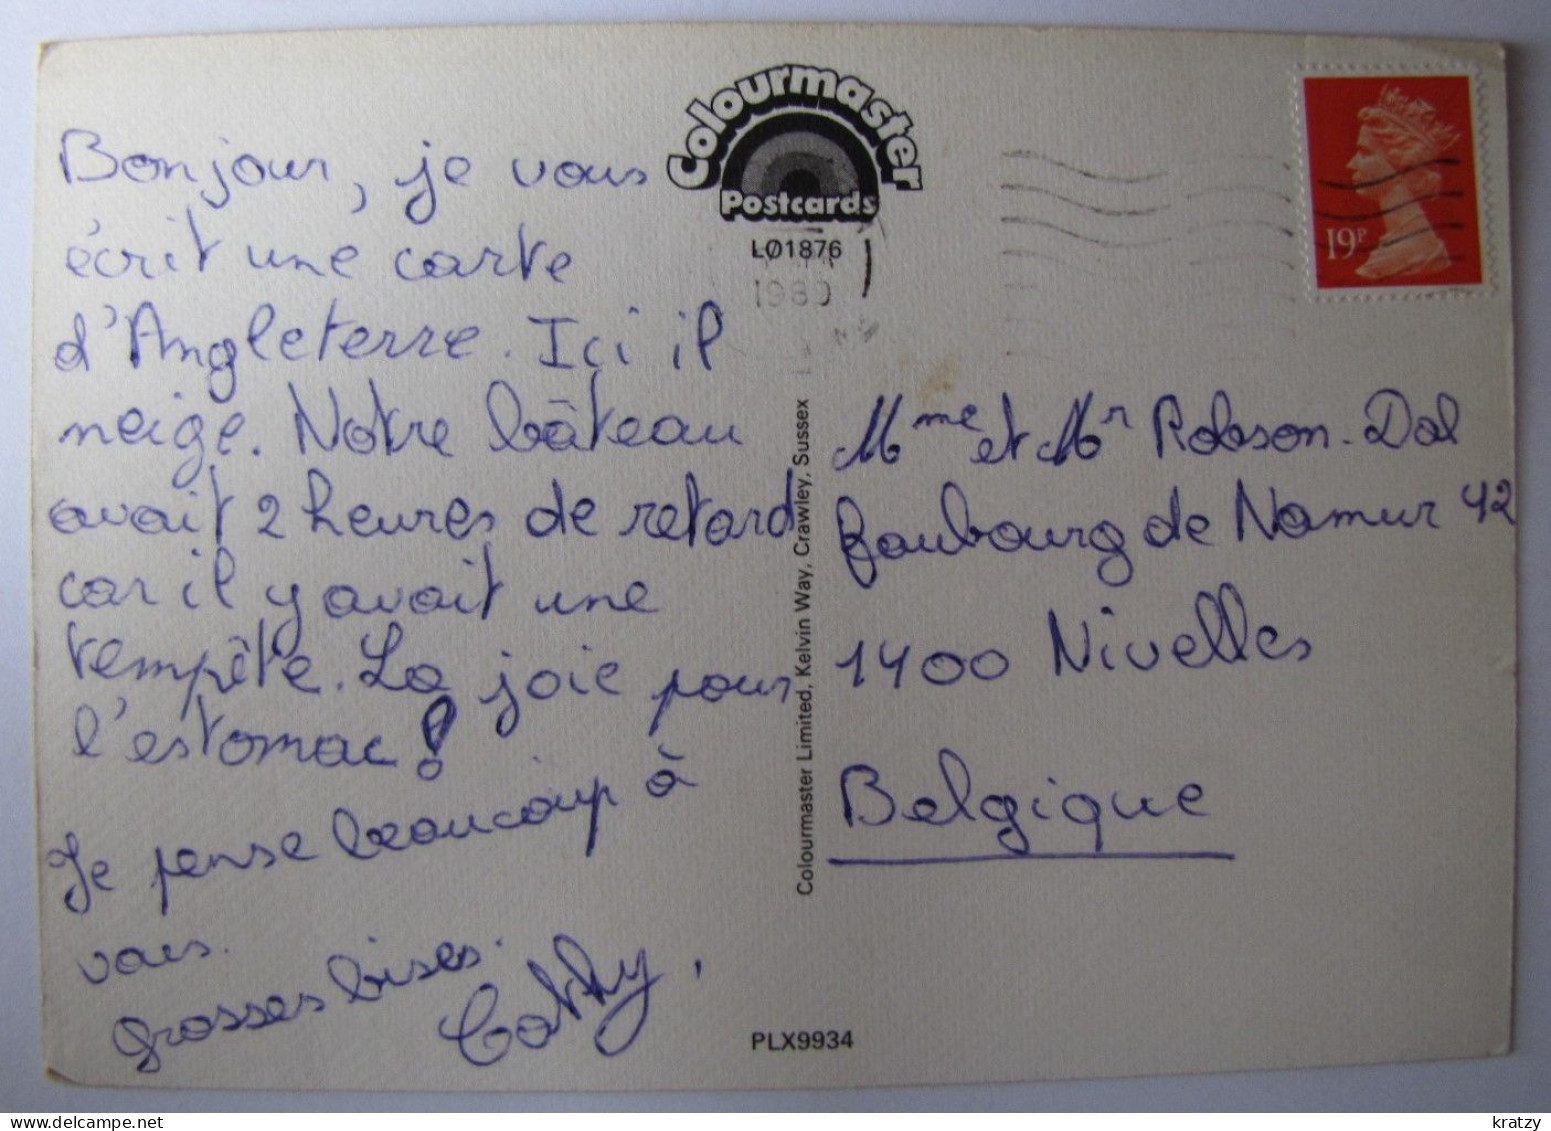 Bonjour, je vous
écrit une carte
d'Angleterre. Ici il
neige. Notre bâteau
avait 2 heures de retard
car il y avait une
tempête. La joie pour
l'estomac !
Je pense beaucoup à
vous.
grosses bises.
Cathy,
Colourmaster
Postcards
LØ1876
1989
Colourmaster Limited, Kelvin Way, Crawley, Sussex
PLX9934
19P
Mme et Mr Robson-Dal
faubourg de Namur 42
1400 Nivelles
Belgique
kratzy